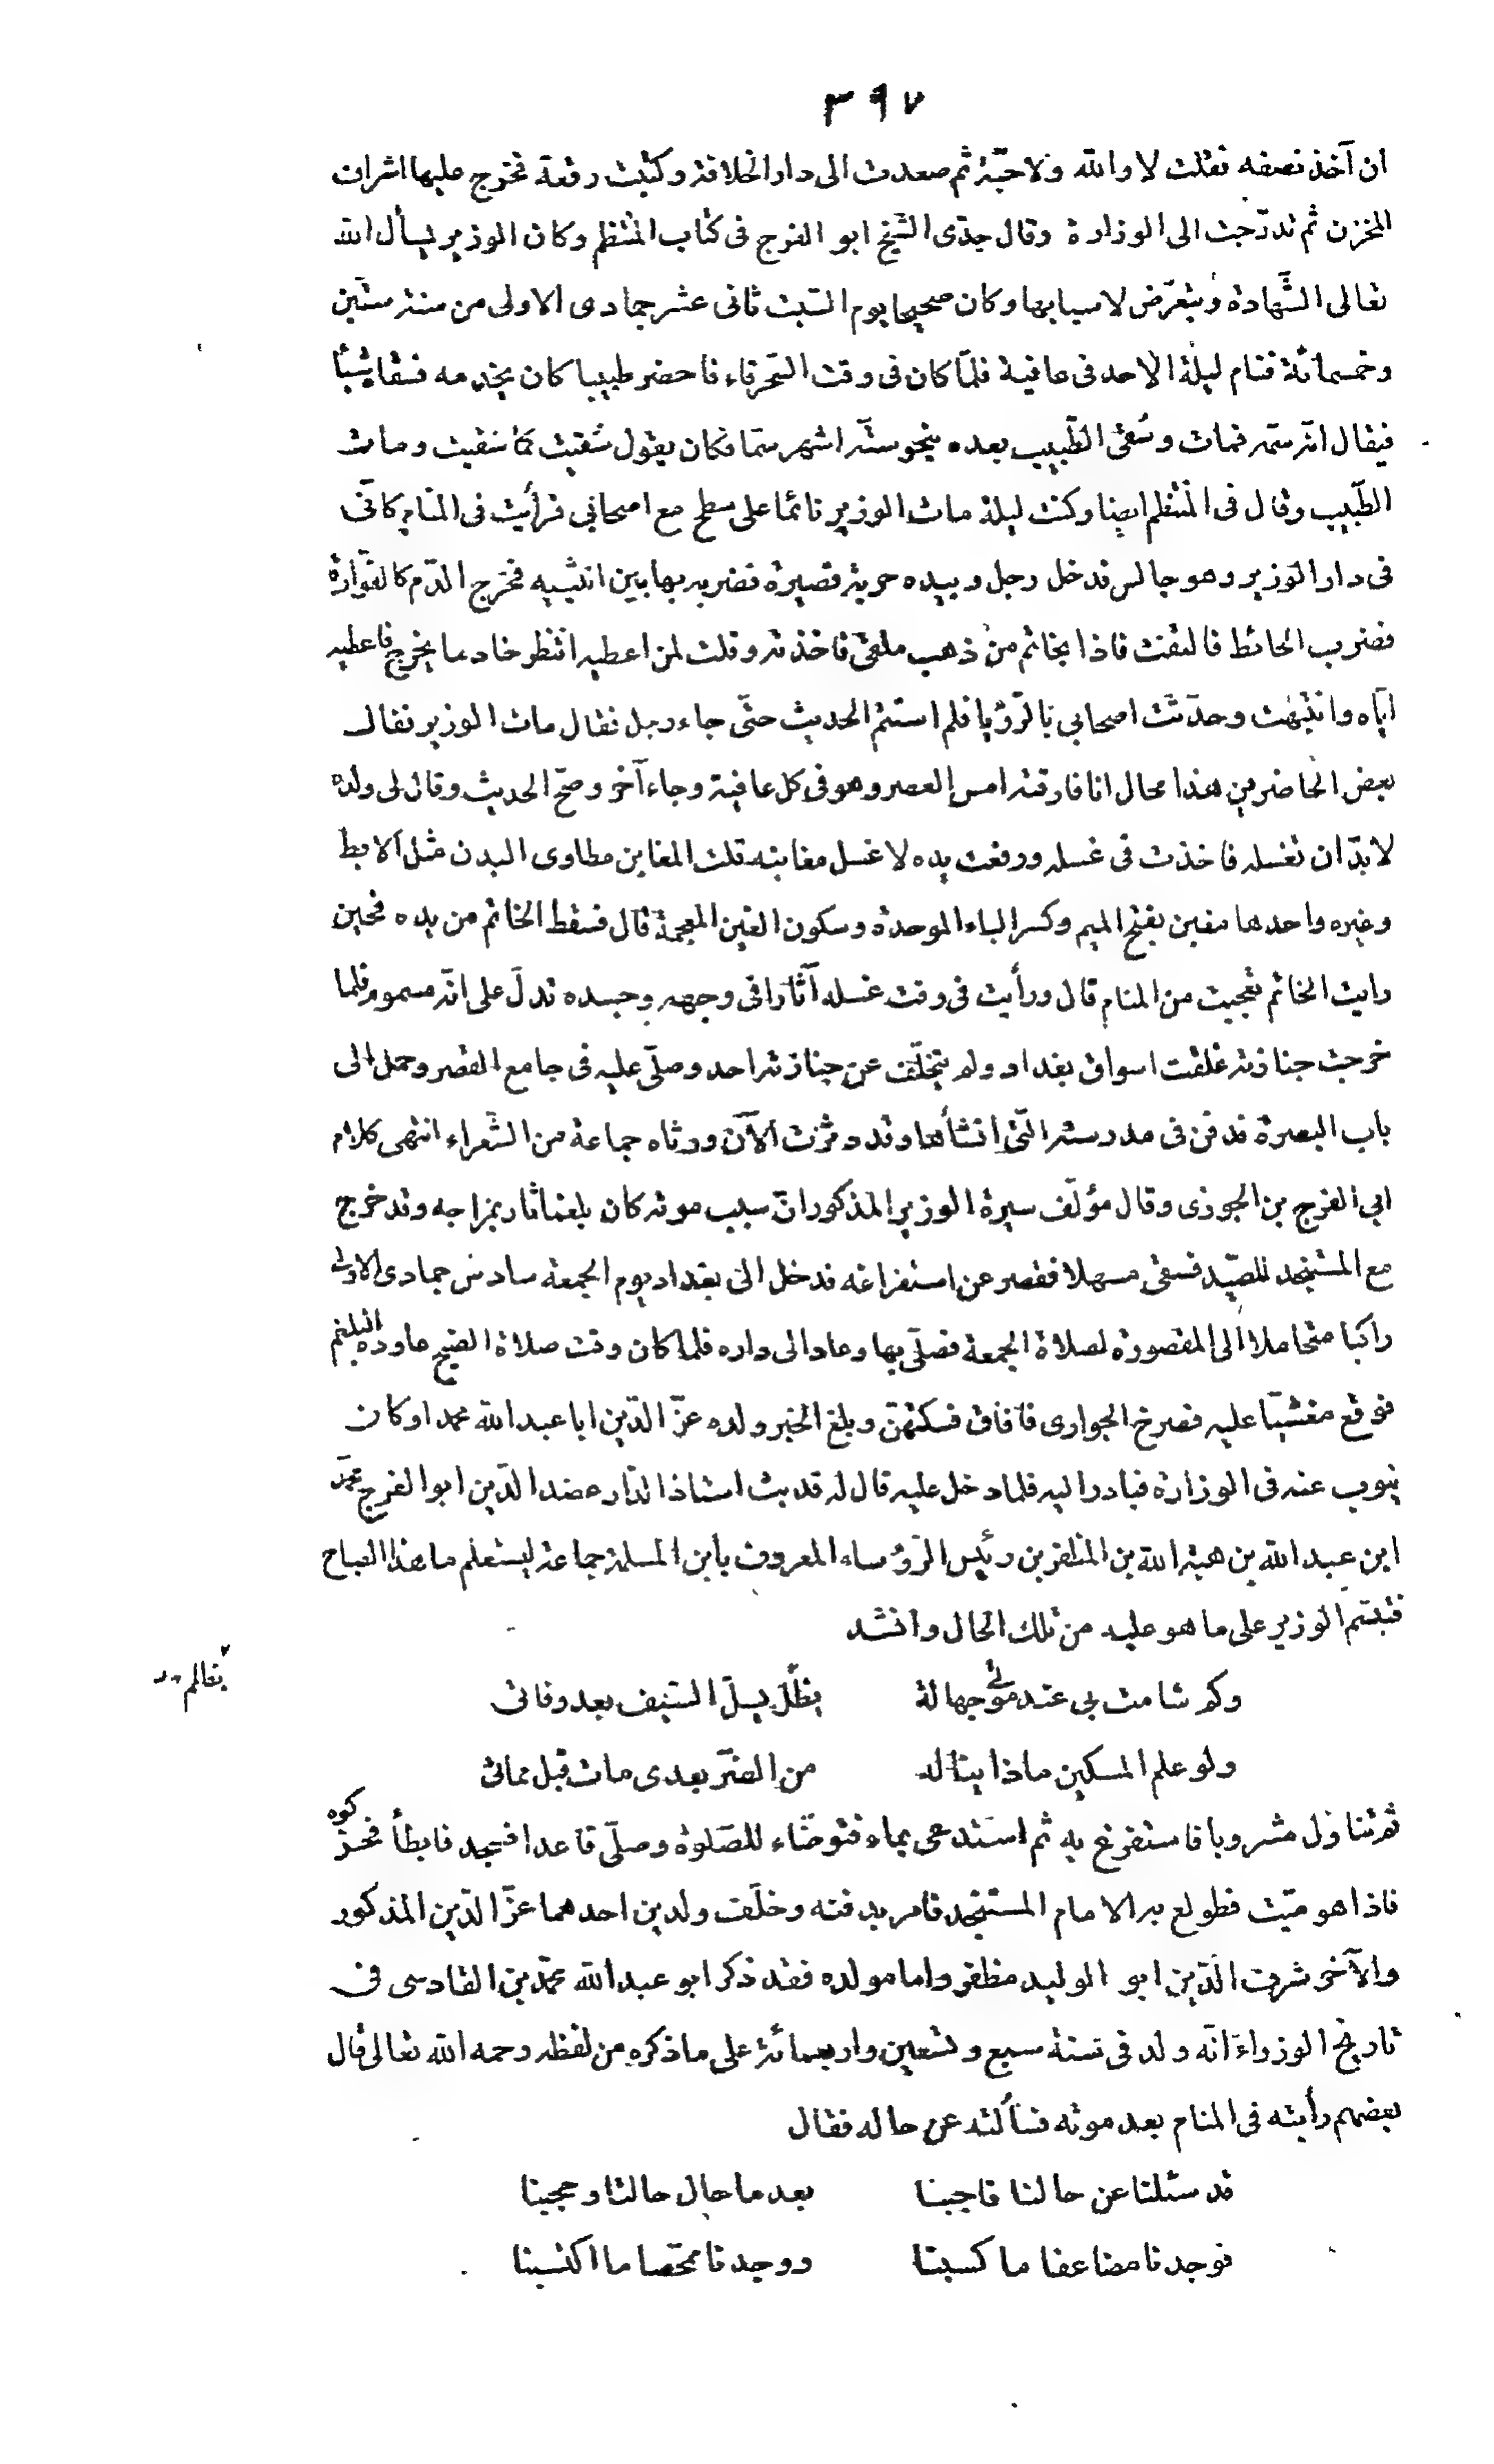 ٣٩٧
ان آخذ نصفه فقلت لا والله ولا حبّة ثم صعدت الى دار الخلافة وكتبت رقعة فخرج عليها اشراف
المخزن ثم تدرّجت الى الوزارة وقال جدّى الشّيخ ابو الفرج فى كتاب المنتظم وكان الوزير يسأل الله
تعالى الشّهادة ويتعرّض لاسبابها وكان صحيحا يوم السّبت ثانى عشر جمادى الاولى من سنة ستّين
وخمسمائة فنام ليلة الاحد فى عافية فلمّا كان فى وقت السّحر قاء فاحضر طبيبا كان يخدمه فسقا شيئا
فيقال انّه سمّه فمات وسُقى الطّبيب بعده بنحو ستّه اشهر سمّا فكان يقول سُقيت كما سقيت ومات
الطّبيب وقال فى المنتظم ايضا وكنت ليلة مات الوزير نائما على سطح مع اصحابى فرأيت فى المنام كانّى
فى دار الوزير وهو جالس فدخل رجل وبيده حربة قصيرة فضربه بها بين انثييه فخرج الدّم كالفوّارة
فضرب الحائط فالتفت فاذا بخاتم من ذهب ملقى فاخذته وقلت لمن اعطيه انتظر خادما يخرج فاعطيه
ايّاه وانتبهت وحدّثت اصحابى بالرّؤيا فلم استتم الحديث حتّى جاء رجل فقال مات الوزير فقال
بعض الحاضرين هذا محال انا فارقته امس العصر وهو فى كل عافية وجاء آخر وصحّ الحديث وقال لى ولده
لابدّ ان تغسله فاخذت فى غسله ورفعت يده لاغسل مغابنه قلت المغابن مطاوى البدن مثل الابط
وغيره واحدها مغبن بفتح الميم وكسر الباء الموحدة وسكون الغين المعجمة قال فسقط الخاتم من يده فحين
رايت الخاتم تعجبت من المنام قال ورأيت فى وقت غسله آثارا فى وجهه وجسده تدلّ على انّه مسموم فلما
خرجت جنازته غلقت اسواق بغداد ولم يتخلّف عن جنازته احد وصلّى عليه فى جامع القصر وحمل الى
باب البصرة فدفن فى مدرسته الّتى انشأها وقد دثرت الآن ورثاه جماعة من الشّعراء انتهى كلام
ابى الفرج بن الجوزى وقال مؤلّف سيرة الوزير المذكور انّ سبب موته كان بلغما ثار بمزاجه وقد خرج
مع المستنجد للصّيد فسقى مسهلا فقصر عن استفراغه فدخل الى بغداد يوم الجمعة سادس جمادى الاولى
راكبا متحاملا الى المقصورة لصلاة الجمعة فصلّى بها وعاد الى داره فلما كان وقت صلاة الصبح عاوده البلغم
فوقع مغشيّا عليه فصرخ الجوارى فافاق فسكتهنّ وبلغ الخبر ولده عزّ الدّين ابا عبد الله محمدا وكان
ينوب عنه فى الوزارة فبادر اليه فلما دخل عليه قال له قد بث استاذ الدّار عضد الدّين ابو الفرج محمّد
ابن عبد الله بن هبة الله بن المظفر بن رئيس الرّؤساء المعروف بابن المسلمة جماعة ليستعلم ما هذا الصياح
فتبسّم الوزير على ما هو عليه من تلك الحال وانشد
وكم شامت بى عند موتى جهالة بظلّ يسلّ السّيف بعد وفاتى
ولو علم المسكين ماذا يناله من الضّرّ بعدى مات قبل مماتى
ثم تناول مشروبا فاستفرغ به ثم استدعى بماء فتوضّاء للصّلوة وصلّى قاعدا فسجد فابطأ فحركوه
فاذا هو ميّت فطولع به الامام المستنجد فامر بدفنه وخلّف ولدين احدهما عزّ الدّين المذكور
والآخر شرف الدّين ابو الوليد مظفر واما مولده فقد ذكر ابو عبد الله محمّد بن القادسى فى
تاريخ الوزراء انّه ولد فى سنة سبع وتسعين واربعمائة على ما ذكره من لفظه رحمه الله تعالى قال
بعضهم رأيته فى المنام بعد موته فسألته عن حاله فقال
قد سئلنا عن حالنا فاجبنا بعد ما حال حالنا وحجبنا
فوجدنا مضاعفا ما كسبنا ووجدنا ممحّصا ما اكتسبنا